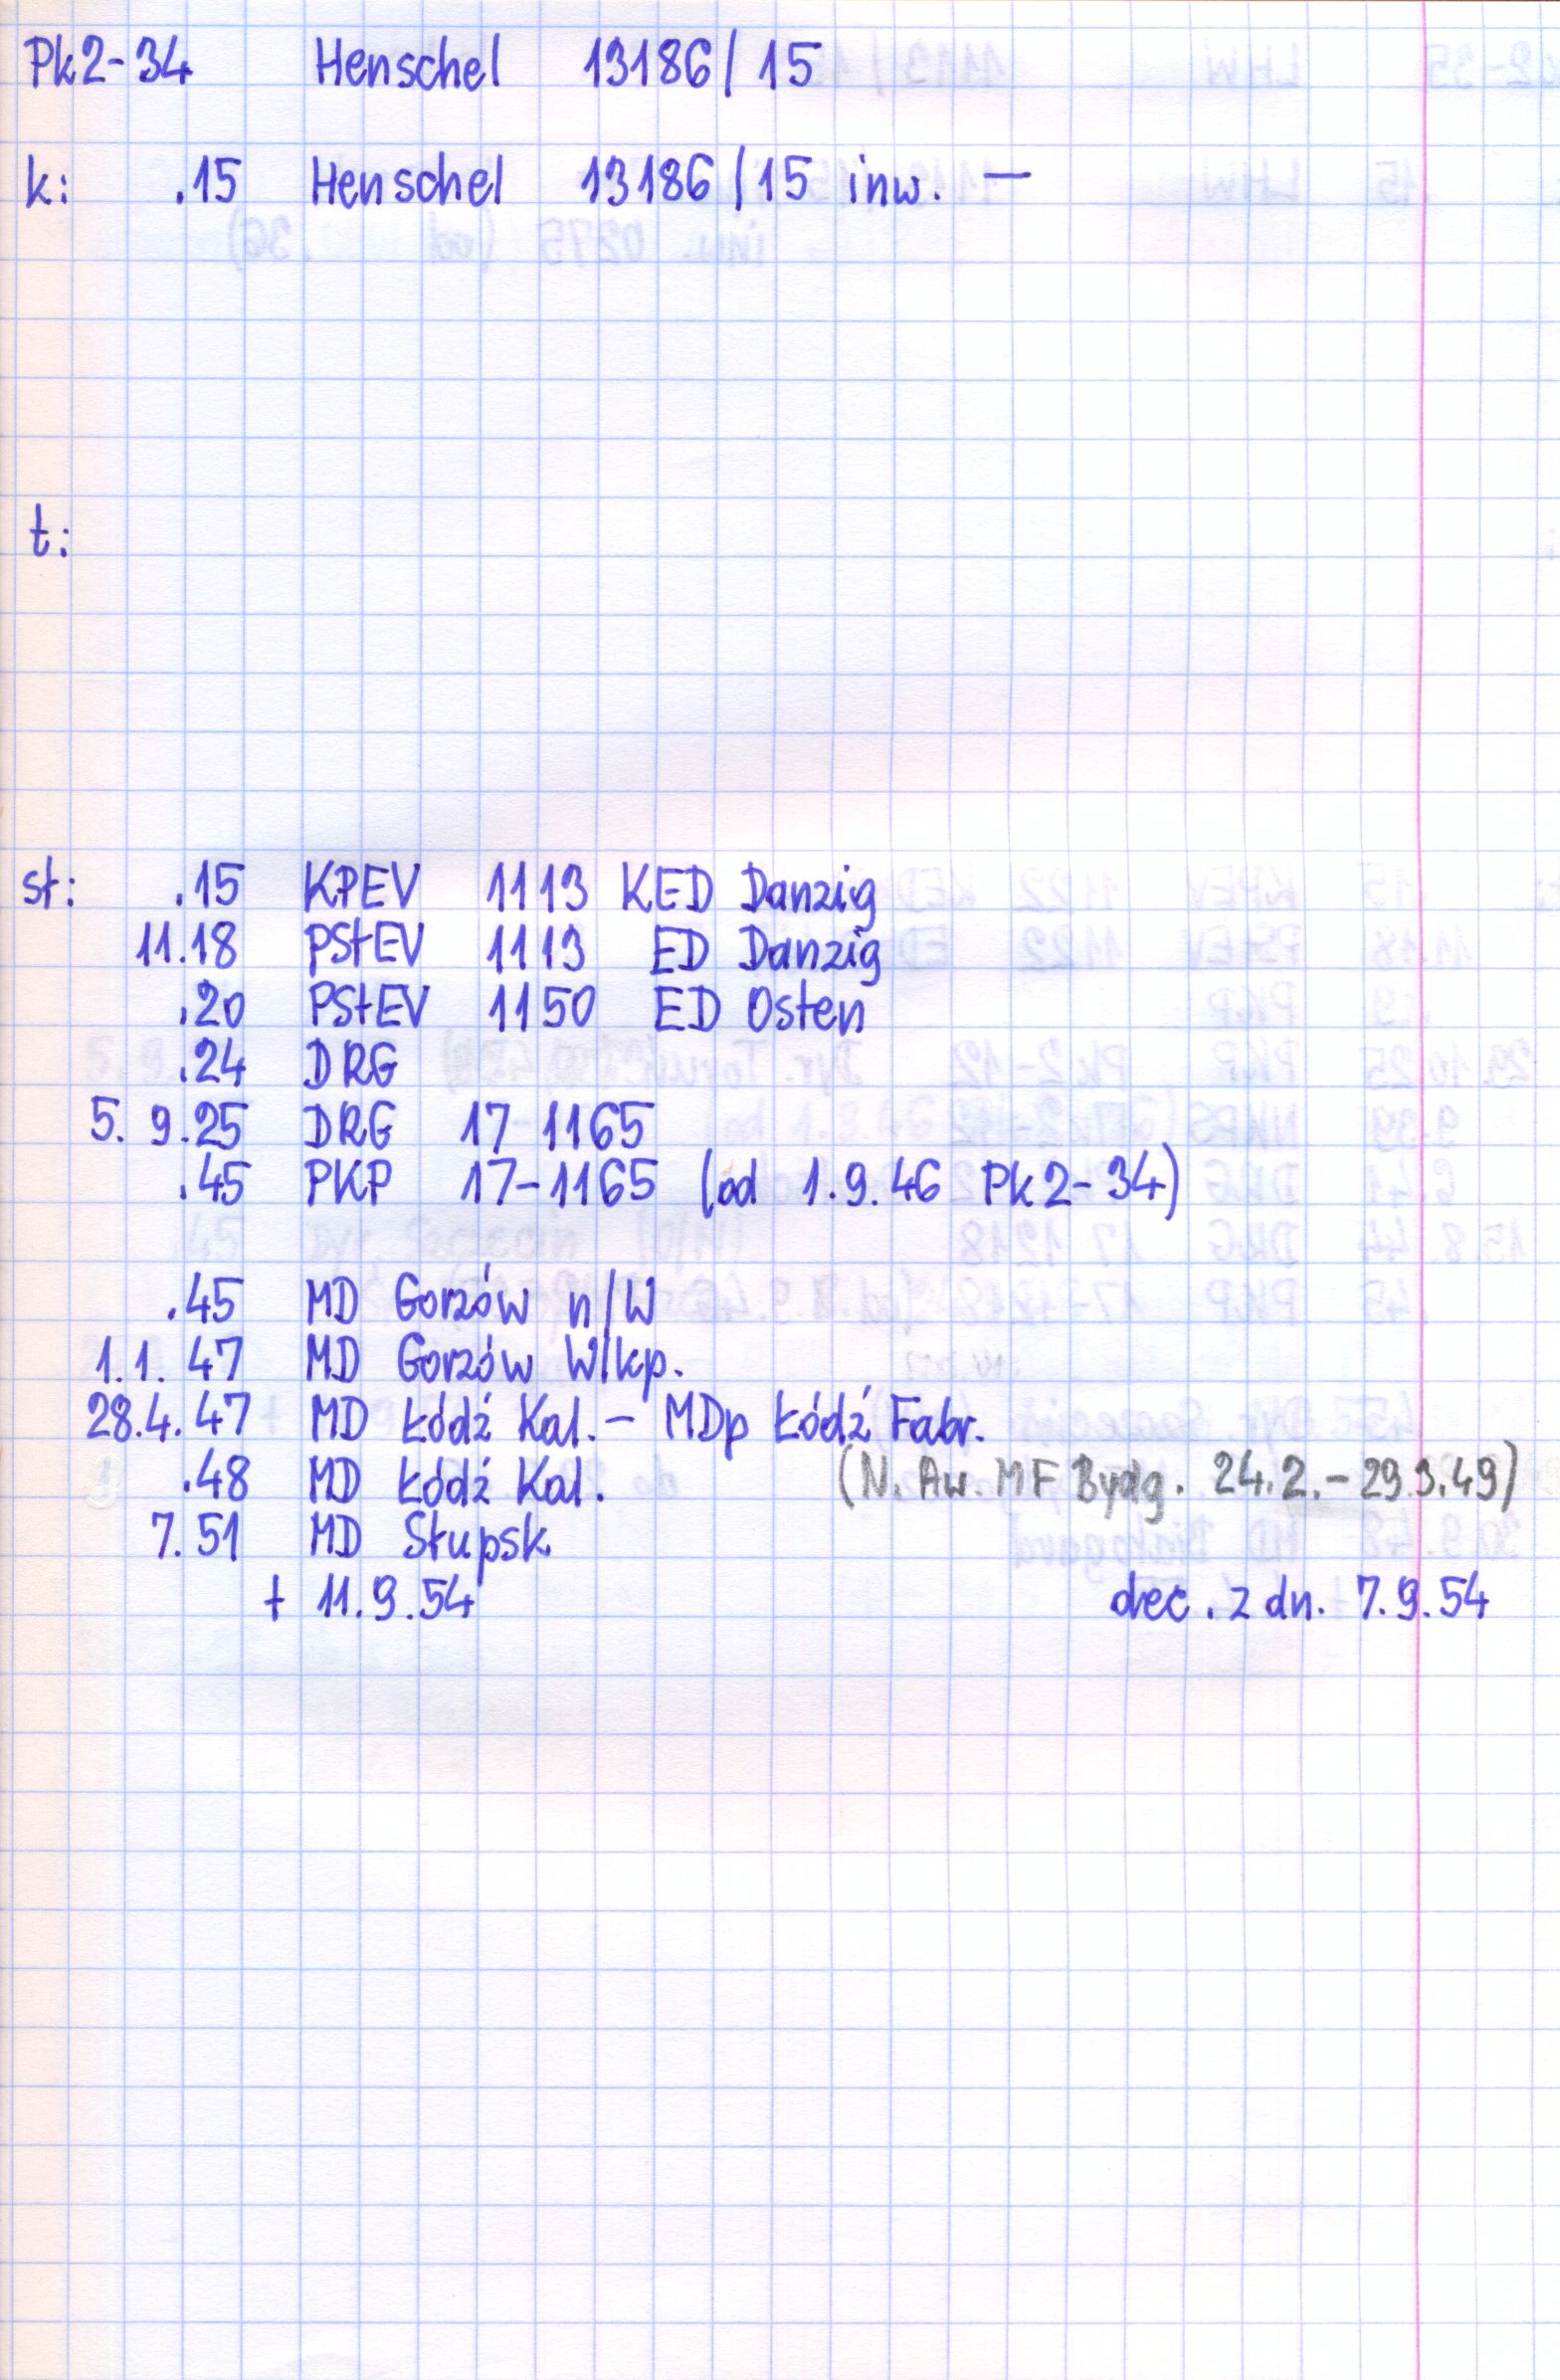 Pk2-34 Henschel 13186/15
k: .15 Henschel 13186/15 inw. —
t:
st: .15 KPEV 1113 KED Danzig
11.18 PStEV 1113 ED Danzig
.20 PStEV 1150 ED Osten
.24 DRG
5. 9.25 DRG 17 1165
.45 PKP 17-1165 (od 1.9.46 Pk2-34)
.45 MD Gorzów n/W
1.1. 47 MD Gorzów Wlkp.
28.4.47 MD Łódź Kal. – MDp Łódź Fabr.
.48 MD Łódź Kal. (N. Aw. MF Bydg. 24.2.-29.3.49)
7.51 MD Słupsk
+ 11.9.54 dec. z dn. 7.9.54